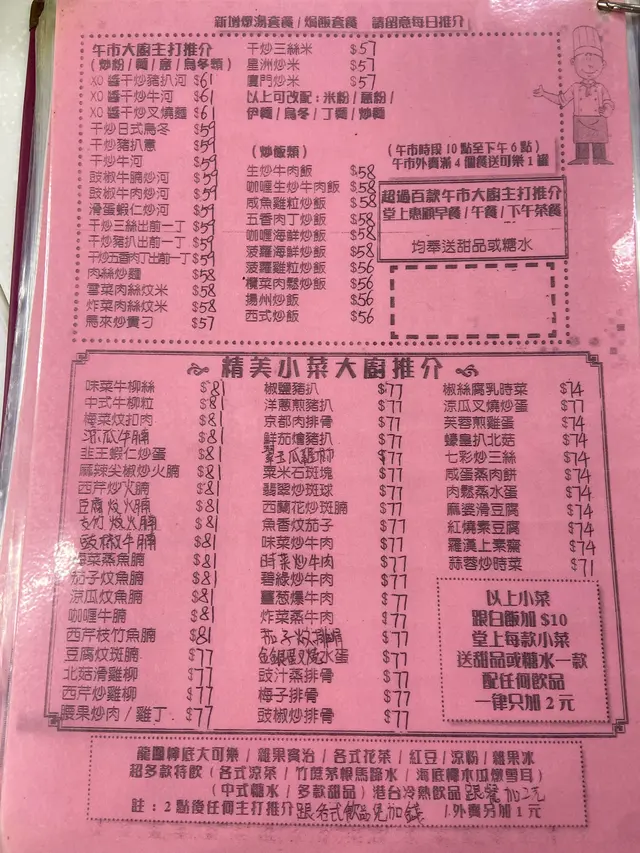 新增燉湯套餐 / 焗飯套餐 請留意每日推介
午市大廚主打推介
(炒粉 / 麵 / 意 / 烏冬類)
XO 醬干炒豬扒河 $61
XO 醬干炒牛河 $61
XO 醬干炒叉燒麵 $61
干炒日式烏冬 $59
干炒豬扒意 $59
干炒牛河 $59
豉椒牛腩炒河 $59
豉椒牛肉炒河 $59
滑蛋蝦仁炒河 $59
干炒三絲出前一丁 $59
干炒豬扒出前一丁 $59
干炒五香肉丁出前一丁 $59
肉絲炒麵 $58
雪菜肉絲炆米 $58
炸菜肉絲炆米 $58
馬來炒貴刁 $57
干炒三絲米 $57
星洲炒米 $57
廈門炒米 $57
以上可改配：米粉 / 意粉 /
伊麵 / 烏冬 / 丁麵 / 炒麵
(炒飯類)
生炒牛肉飯 $58
咖喱生炒牛肉飯 $58
咸魚雞粒炒飯 $58
五香肉丁炒飯 $58
咖喱海鮮炒飯 $58
菠蘿海鮮炒飯 $58
菠蘿雞粒炒飯 $56
欖菜肉鬆炒飯 $56
揚州炒飯 $56
西式炒飯 $56
(午市時段 10 點至下午 6 點)
午市外賣滿 4 個餐送可樂 1 罐
超過百款午市大廚主打推介
堂上惠顧早餐 / 午餐 / 下午茶餐
均奉送甜品或糖水
精美小菜大廚推介
味菜牛柳絲 $81
中式牛柳粒 $81
梅菜炆扣肉 $81
涼瓜牛腩 $81
韭王蝦仁炒蛋 $81
麻辣尖椒炒火腩 $81
西芹炒火腩 $81
豆腐炆火腩 $81
支竹炆火腩 $81
豉椒牛腩 $81
菜蒸魚腩 $81
茄子炆魚腩 $81
涼瓜炆魚腩 $81
咖喱牛腩 $81
西芹枝竹魚腩 $81
豆腐炆斑腩 $77
北菇滑雞柳 $77
西芹炒雞柳 $77
腰果炒肉 / 雞丁 $77
椒鹽豬扒 $77
洋蔥煎豬扒 $77
京都肉排骨 $77
鮮茄燴豬扒 $77
翠玉瓜雞柳 $77
粟米石斑塊 $77
翡翠炒斑球 $77
西蘭花炒斑腩 $77
魚香炆茄子 $77
味菜炒牛肉 $77
時菜炒牛肉 $77
碧綠炒牛肉 $77
薑蔥爆牛肉 $77
炸菜蒸牛肉 $77
茄子炆排骨 $77
金銀蛋叉燒水蛋 $77
豉汁蒸排骨 $77
梅子排骨 $77
豉椒炒排骨 $77
椒絲腐乳時菜 $74
涼瓜叉燒炒蛋 $77
芙蓉煎雞蛋 $74
蠔皇扒北菇 $74
七彩炒三絲 $74
咸蛋蒸肉餅 $74
肉鬆蒸水蛋 $74
麻婆滑豆腐 $74
紅燒素豆腐 $74
羅漢上素齋 $74
蒜蓉炒時菜 $71
以上小菜
跟白飯加 $10
堂上每款小菜
送甜品或糖水一款
配任何飲品
一律只加 2 元
龍鳳檸底大可樂 / 雜果賓治 / 各式花茶 / 紅豆 / 涼粉 / 雜果冰
超多款特飲 (各式涼茶 / 竹蔗茅根馬蹄水 / 海底椰木瓜燉雪耳)
(中式糖水 / 多款甜品) 港台冷熱飲品 跟餐加2元
註：2 點後任何主打推介跟各式飲品免加錢 / 外賣另加 1 元